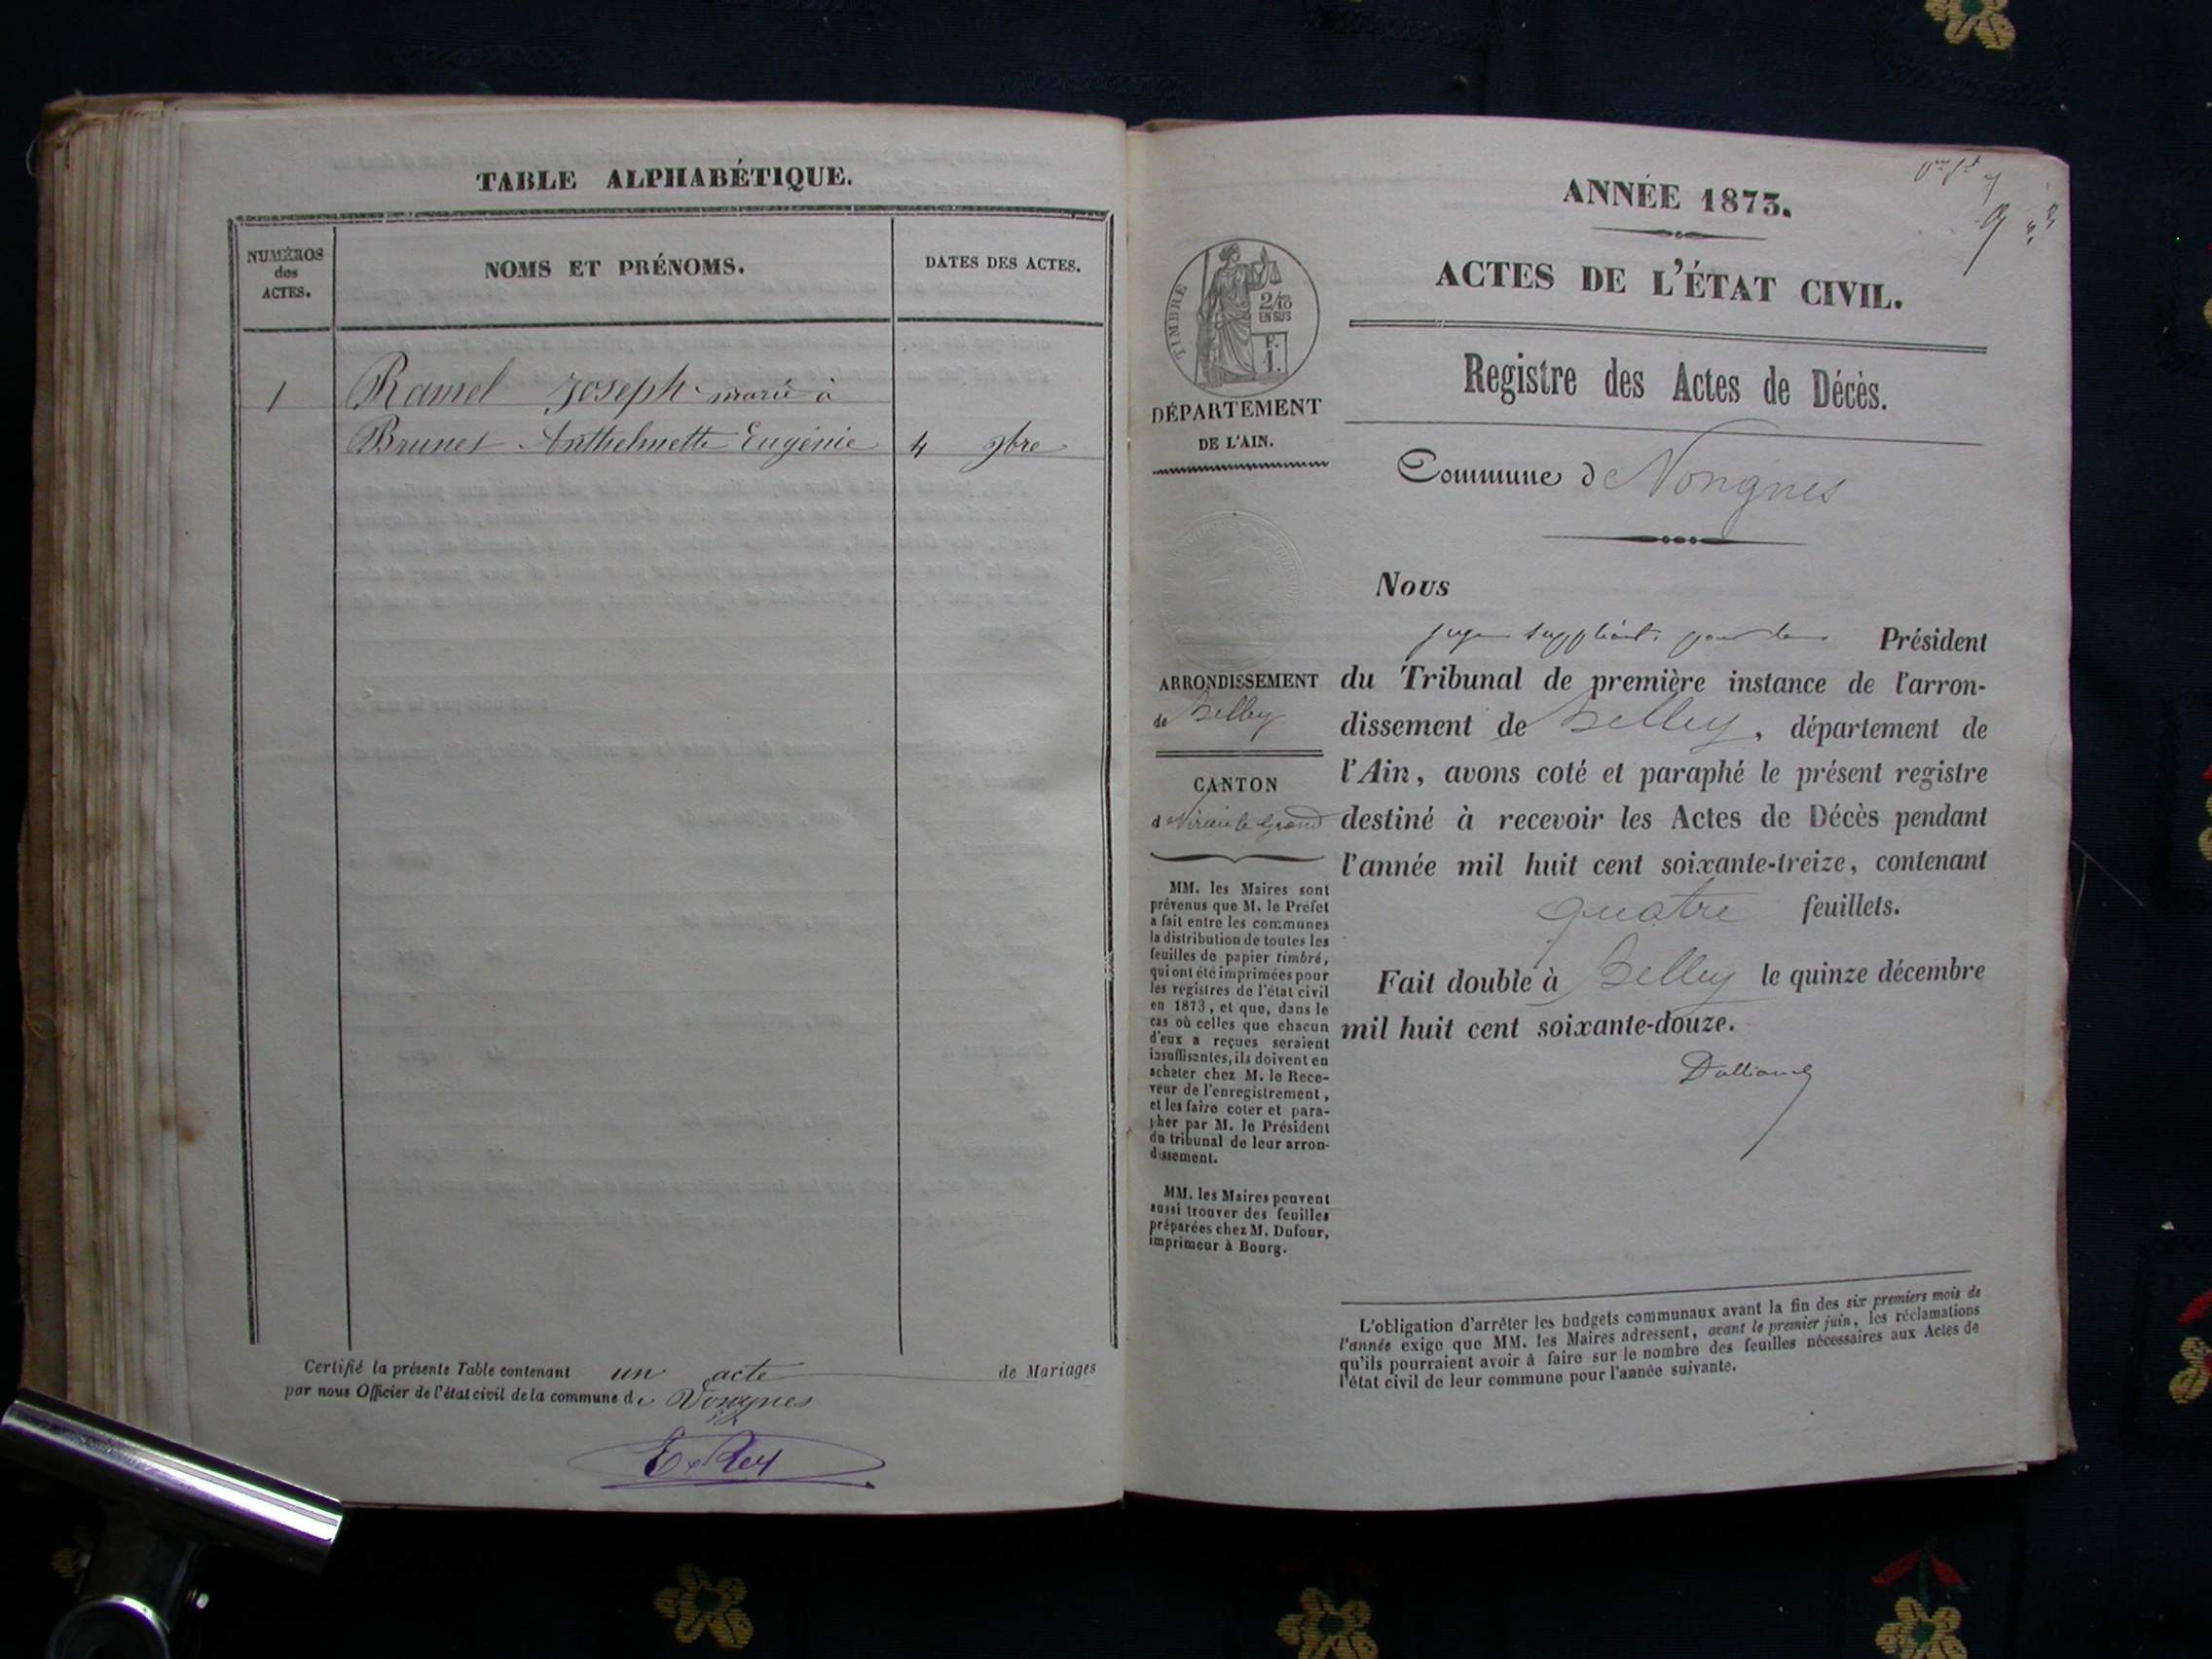 TABLE ALPHABÉTIQUE.
NUMÉROS
des
ACTES.
NOMS ET PRÉNOMS.
DATES DES ACTES.
1 Ramel Joseph marié à
Brunet Anthelmette Eugénie 4 9bre
Certifié la présente Table contenant un acte de Mariages
par nous Officier de l'état civil de la commune de Vongnes
E. Rey
ANNÉE 1873.
ACTES DE L'ÉTAT CIVIL.
Registre des Actes de Décès.
Commune de Vongnes
TIMBRE
2/10
EN SUS
F.
1.
DÉPARTEMENT
DE L'AIN.
ARRONDISSEMENT
de Belley
CANTON
de Virieu le Grand
MM. les Maires sont
prévenus que M. le Préfet
a fait entre les communes
la distribution de toutes les
feuilles de papier timbré,
qui ont été imprimées pour
les registres de l'état civil
en 1873, et que, dans le
cas où celles que chacun
d'eux a reçues seraient
insuffisantes, ils doivent en
acheter chez M. le Rece-
veur de l'enregistrement,
et les faire coter et para-
pher par M. le Président
du tribunal de leur arron-
dissement.
MM. les Maires peuvent
aussi trouver des feuilles
préparées chez M. Dufour,
imprimeur à Bourg.
Nous
juge suppléant pour le Président
du Tribunal de première instance de l'arron-
dissement de Belley, département de
l'Ain, avons coté et paraphé le présent registre
destiné à recevoir les Actes de Décès pendant
l'année mil huit cent soixante-treize, contenant
quatre feuillets.
Fait double à Belley le quinze décembre
mil huit cent soixante-douze.
L'obligation d'arrêter les budgets communaux avant la fin des six premiers mois de
l'année exige que MM. les Maires adressent, avant le premier juin, les réclamations
qu'ils pourraient avoir à faire sur le nombre des feuilles nécessaires aux Actes de
l'état civil de leur commune pour l'année suivante.